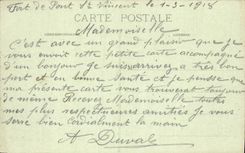 Fort de Pont St Vincent le 1-3-1918
CARTE POSTALE
Mademoiselle
C'est avec un grand plaisir que je
vous envoie cette petite carte accompagné
d'un bonjour je suis arrivé a très bon
port et en bonne santé et je pense que
ma présente carte vous trouverat toujours
de meme Recevez Mademoiselle toutes
mes plus respectueuses amitiés Je vous
serre bien cordialement la main
A Duval